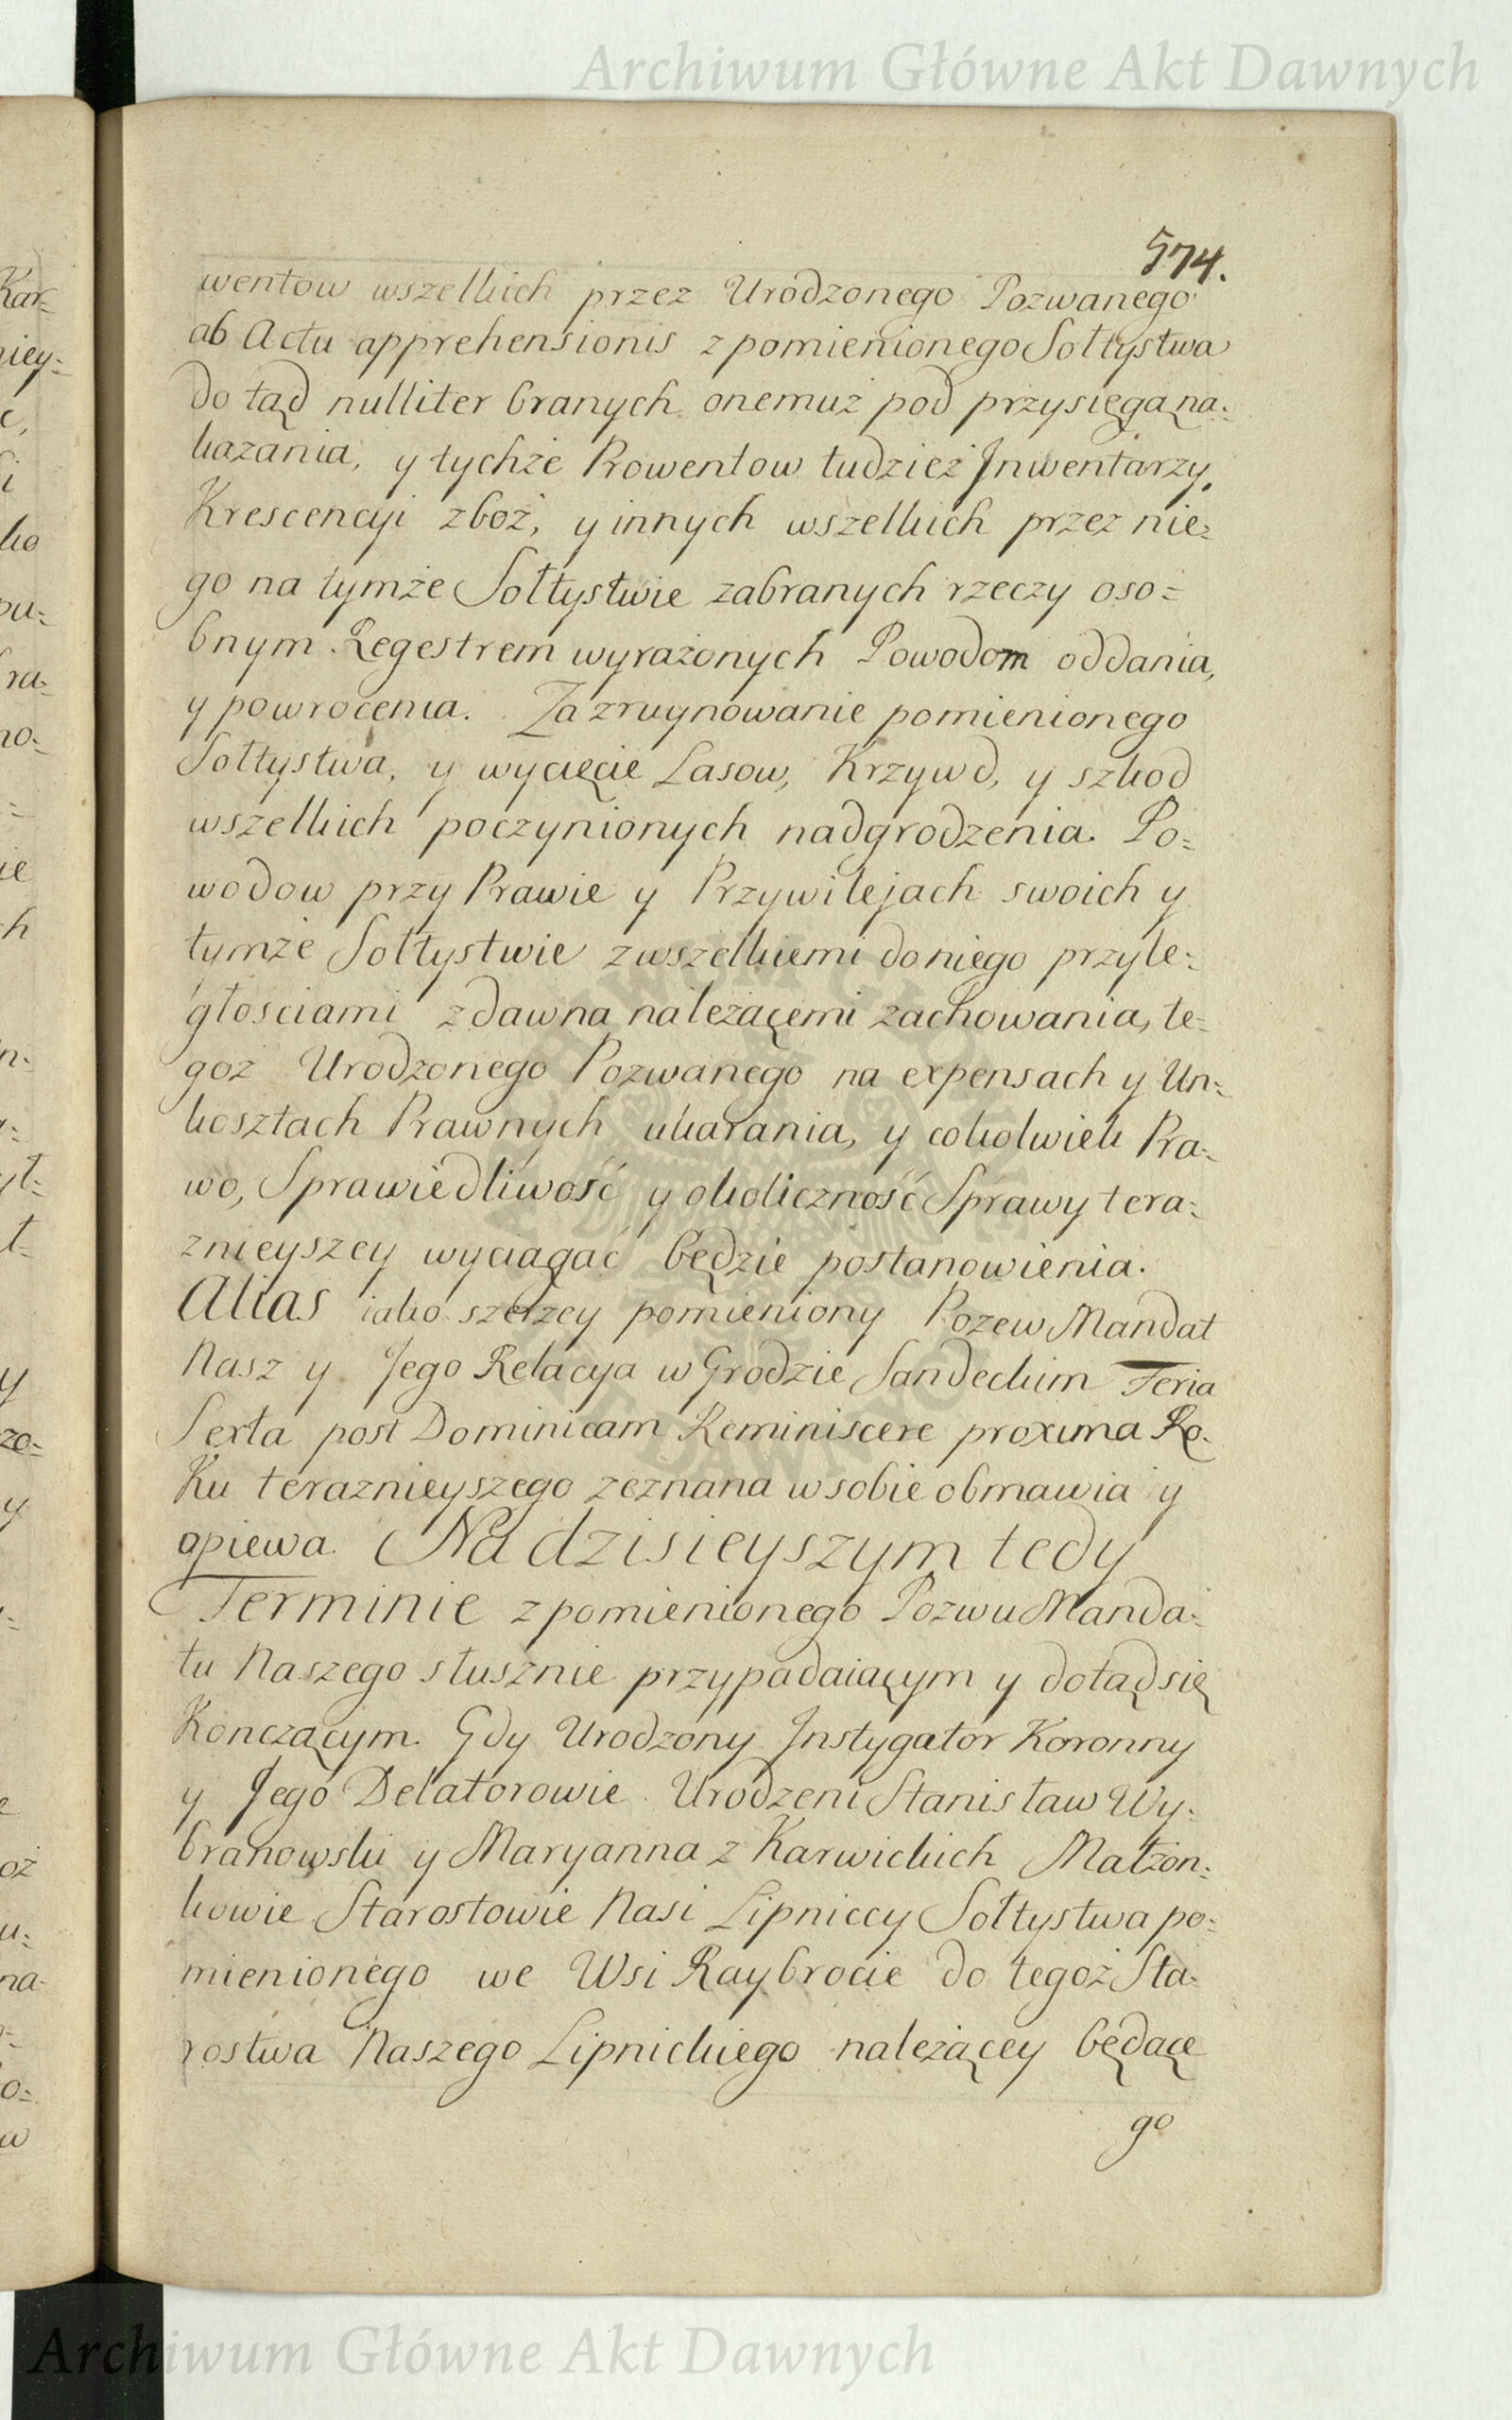 Archiwum Główne Akt Dawnych
574.
wentow wszelkich przez Urodzonego Pozwanego
ab Actu apprehensionis z pomienionego Sołtystwa
do tąd nulliter branych onemuż pod przysięgą na:
kazania, y tychże Prowentow tudzież Jnwentarzy,
Krescencyi zboż, y innych wszelkich przez nie:
go na tymże Sołtystwie zabranych rzeczy oso=
bnym Regestrem wyrażonych Powodom oddania,
y powrocenia. Za zruynowanie pomienionego
Sołtystwa, y wycięcie Lasow, Krzywd, y szkod
wszelkich poczynionych nadgrodzenia. Po:
wodow przy Prawie y Przywilejach swoich y
tymże Sołtystwie z wszelkiemi do niego przyle:
głosciami z dawna należącemi zachowania, te:
goż Urodzonego Pozwanego na expensach y Un:
kosztach Prawnych ukarania, y cokolwiek Pra:
wo, Sprawiedliwość y okoliczność Sprawy tera:
znieyszey wyciągać będzie postanowienia.
Alias iako szerzey pomieniony Pozew Mandat
Nasz y Jego Relacya w Grodzie Sandeckim Feria
Sexta post Dominicam Reminiscere proxima Ro:
Ku teraznieyszego zeznana w sobie obmawia y
opiewa. Na dzisieyszym tedy
Terminie z pomienionego Pozwu Manda:
tu Naszego słusznie przypadaiącym y dotąd się
Kończącym. Gdy Urodzony Jnstygator Koronny
y Jego Delatorowie Urodzeni Stanisław Wy:
branowski y Maryanna z Karwickich Małżon:
kowie Starostowie Nasi Lipniccy Sołtystwa po:
mienionego we Wsi Raybrocie do tegoż Sta:
rostwa Naszego Lipnickiego należącey będące
go
Archiwum Główne Akt Dawnych